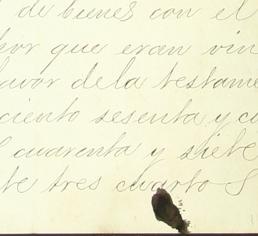 de bienes con el
que eran vin
favor de la testame
ciento sesenta y cu
cuarenta y siete
te tres cuarto S